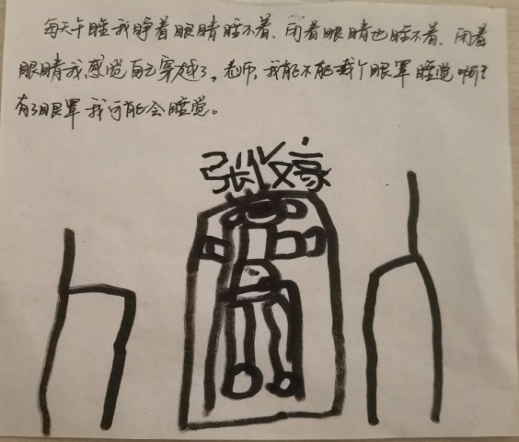 每天午睡我睁着眼睛睡不着、闭着眼睛也睡不着、闭着
眼睛我感觉自己穿越了，老师，我能不能戴个眼罩睡觉啊？
有了眼罩我可能会睡觉。
张俊豪